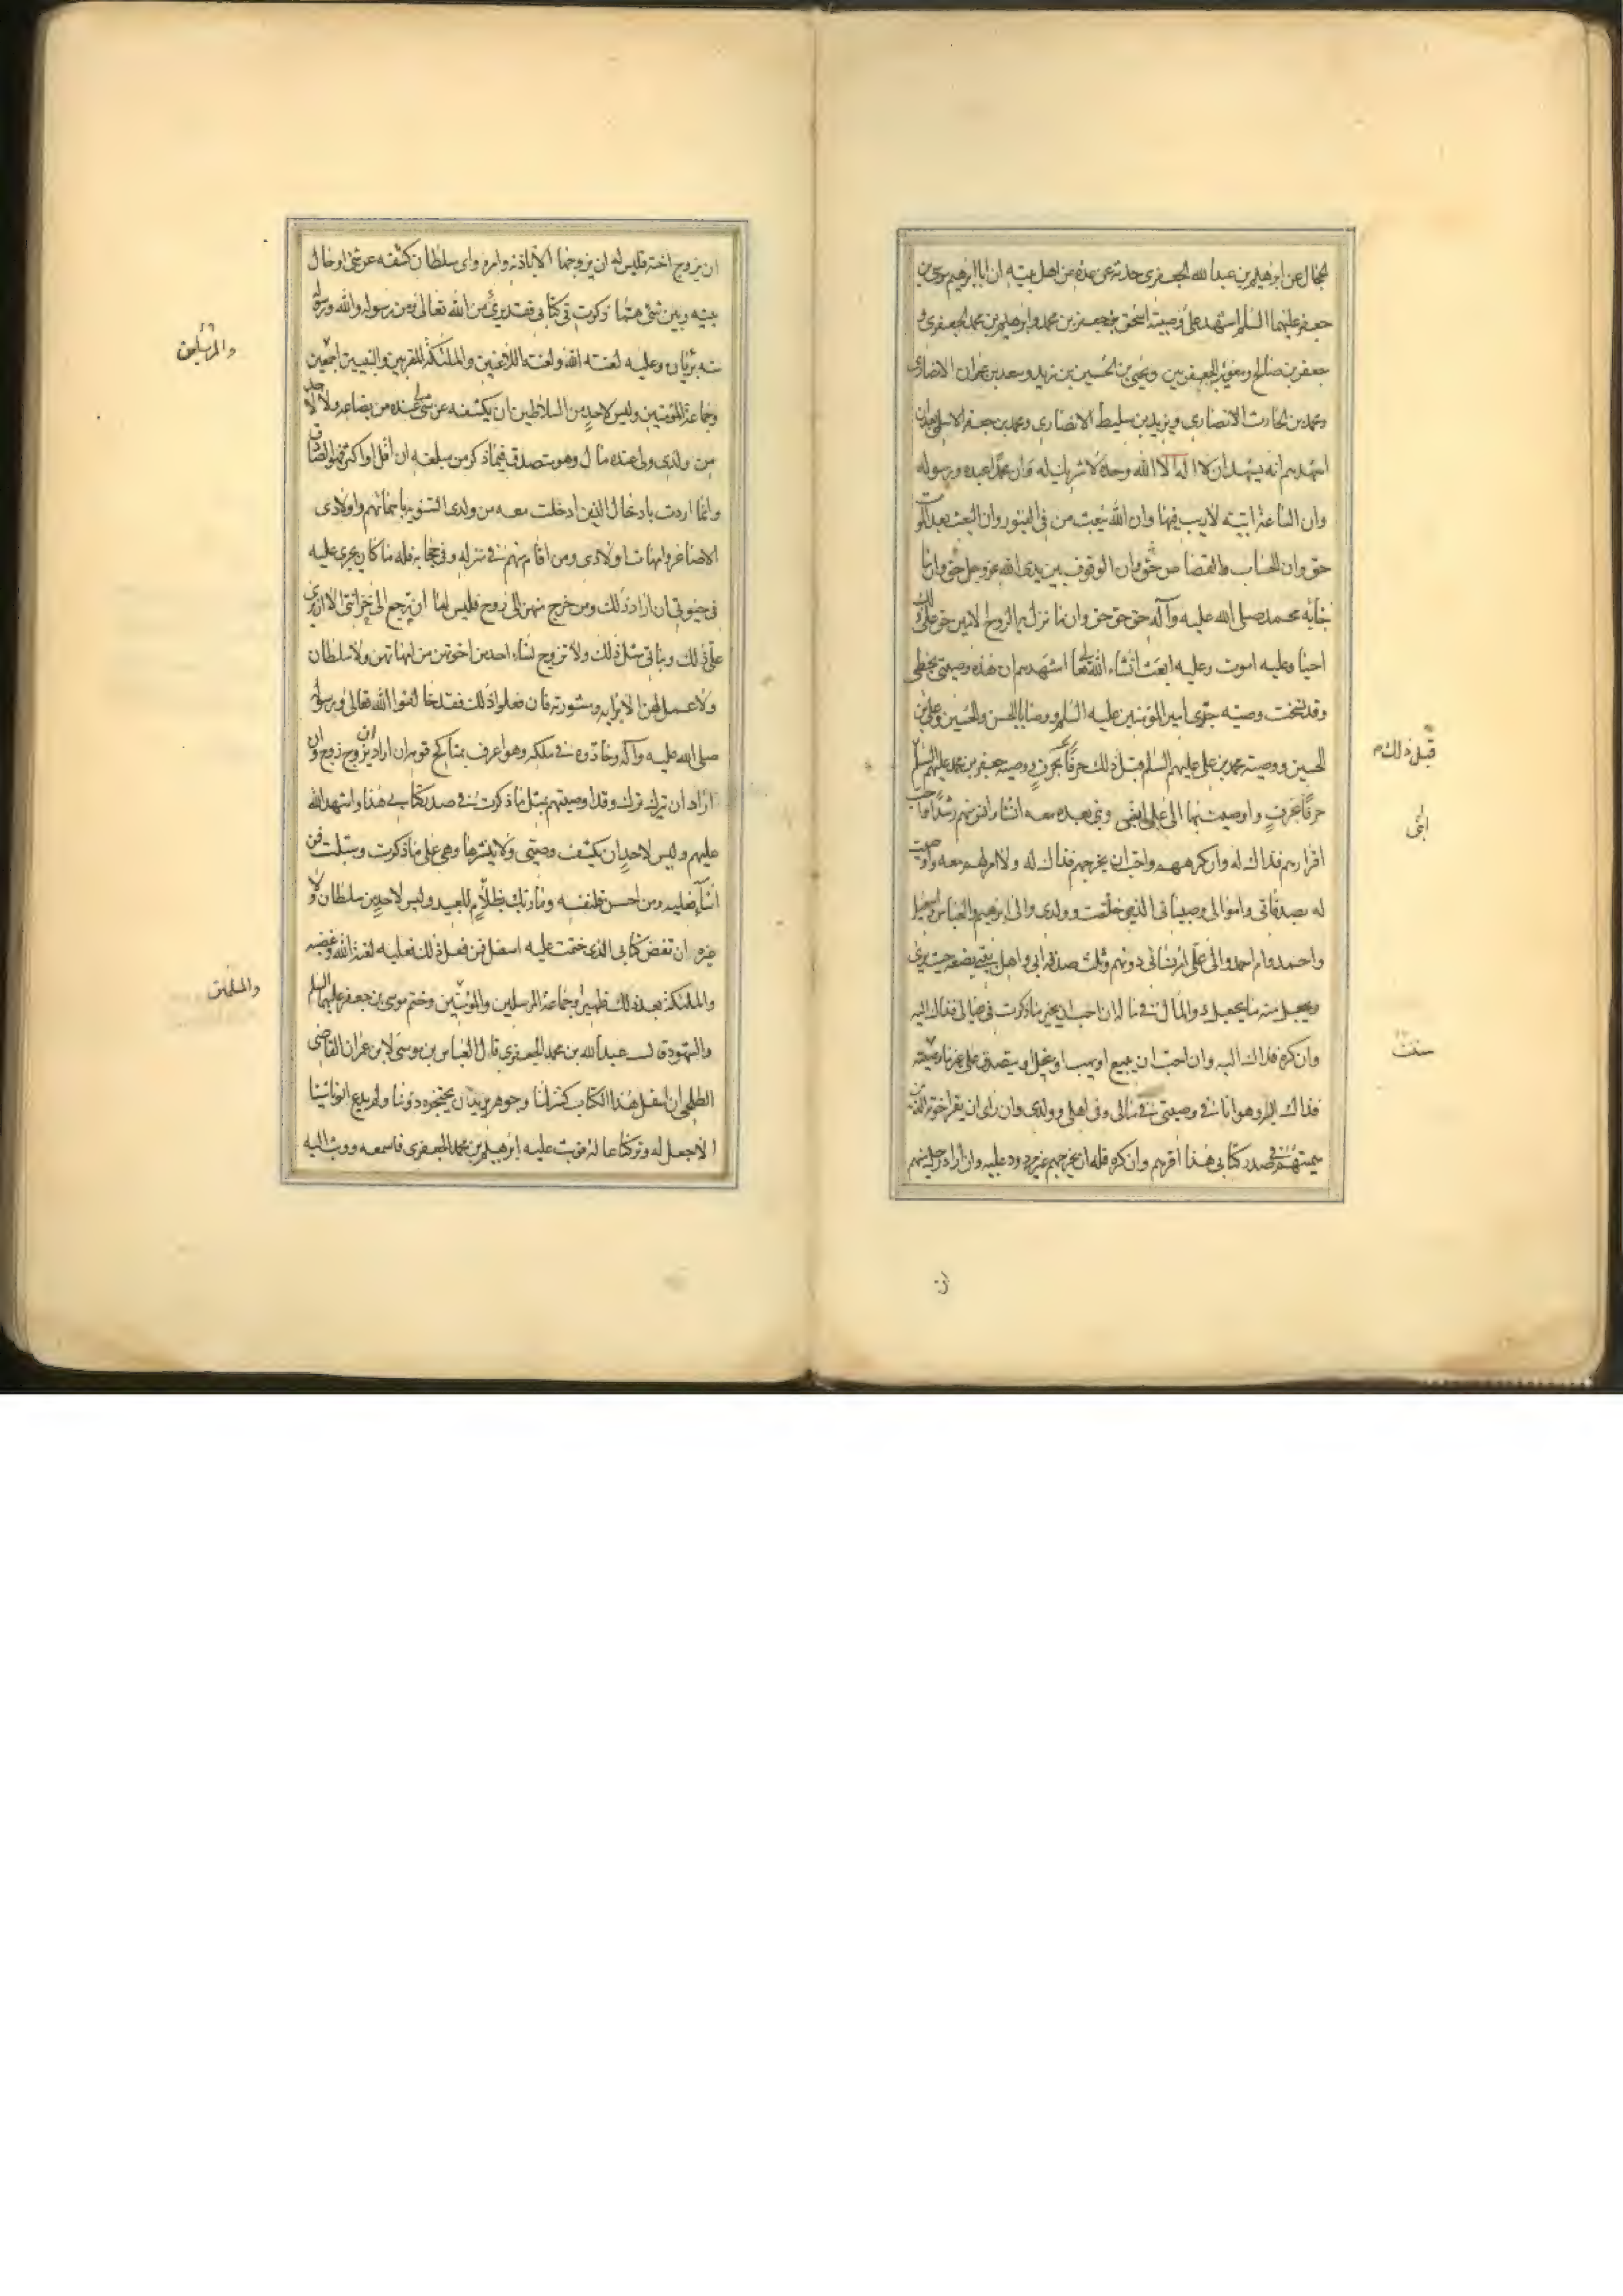 الجمال عن ابرهيم بن عبد الله الجعفري حدثه عن عدة من اهل بيته ان ابا ابرهيم موسى بن
جعفر عليهما السلم اشهد على وصيته اسحق بن جعفر بن محمد وابرهيم بن محمد الجعفري و
جعفر بن صالح ومعوية الجعفريين ويحيى بن الحسين بن زيد وسعد بن عمران الانصاري
ومحمد بن الحارث الانصاري ويزيد بن سليط الانصاري ومحمد بن جعفر الاسلمي بعد ان
اشهدهم انه يشهد ان لا اله الا الله وحده لا شريك له وان محمدا عبده ورسوله
وان الساعة اتية لا ريب فيها وان الله يبعث من في القبور وان البعث بعد الموت
حق وان الحساب والقصاص حق وان الوقوف بين يدي الله عز وجل حق وان ما
جاء به محمد صلى الله عليه وآله حق حق حق وان ما نزل به الروح الامين حق على ذلك
احيا وعليه اموت وعليه ابعث انشاء الله تعا اشهدهم ان هذه وصيتي بخطي
وقد نسخت وصية جدي امير المؤمنين عليه السلم ووصايا الحسن والحسين وعلي بن
الحسين ووصية محمد بن علي عليهم السلم قبل ذلك حرفا بحرف ووصية جعفر بن محمد عليهم السلم
قبل ذلك م
حرفا بحرف واوصيت بها الى علي ابني وبني بعده معه ان شا وانس منهم رشدا واحب
ابني
اقرارهم فذاك له وان كرههم واحب ان يخرجهم فذاك له ولا امر لهم معه واوصيت
له بصدقاتي واموالي وصبياني الذين خلفت وولدي والى ابرهيم والعباس واسمعيل
واحمد وام احمد والى علي امر نسائي دونهم وثلث صدقة ابي واهل بيتي يضعه حيث يرى
ويجعل منه ما يجعل ذو المال في ماله ان احب ان يجيز ما ذكرت في عيالي فذاك اليه
وان كره فذاك اليه وان احب ان يبيع او يهب او ينحل او يتصدق على غير ما وصيته
فذاك اليه وهو انا في وصيتي في مالي وفي اهلي وولدي وان راى ان يقر اخوته الذين
سميتهم في صدر كتابي هذا اقرهم وان كره فله ان يخرجهم غير مردود عليه وان اراد رجل منهم
ان يزوج اخته فليس له ان يزوجها الا باذنه وامره واي سلطان كشفه عن شئ او حال
بينه وبين شئ مما ذكرت في كتابي فقد برئ من الله تعالى ومن رسوله والله ورسوله
منه بريان وعليه لعنة الله ولعنة اللاعنين والملئكة المقربين والنبيين اجمعين
والمرسلين
وجماعة المؤمنين وليس لاحد من السلاطين ان يكشفه عن شئ لي عنده من بضاعة ولا لاحد
من ولدي ولي عنده مال وهو مصدق فيما ذكر من مبلغه ان اقل او اكثر فهو الصادق
وانما اردت بادخال الذين ادخلت معه من ولدي التنويه باسمائهم واولادي
الاصاغر وامهات اولادي ومن اقام منهم في منزله وفي حجابه فله ما كان يجري عليه
في حيوتي ان اراد ذلك ومن خرج منهن الى زوج فليس لها ان ترجع الى خزانتي الا ان يرى
علي ذلك وبناتي مثل ذلك ولا تزوج نساء احد من اخوتهن من امهاتهن ولا سلطان
ولا عمل لهن الا برايه ومشورته فان فعلوا ذلك فقد خالفوا الله تعالى ورسوله
صلى الله عليه وآله وحادوه في ملكه وهو اعرف بمناكح قومه ان اراد ان يزوج زوج وان
اراد ان يترك ترك وقد اوصيتهم بمثل ما ذكرت في صدر كتابي هذا واشهد الله
عليهم وليس لاحد ان يكشف وصيتي ولا ينشرها وهي على ما ذكرت وسبلت فمن
اساء فعليه ومن احسن فلنفسه وما ربك بظلام للعبيد وليس لاحد من سلطان ولا
غيره ان تفض كتابي الذي ختمت عليه اسفل فمن فعل ذلك فعليه لعنة الله وغضبه
والملئكة بعد ذلك ظهير وجماعة المرسلين والمؤمنين وختم موسى بن جعفر عليهما السلم
والمسلمين
والشهود قال عبد الله بن محمد الجعفري قال العباس بن موسى لابن عمران القاضي
الطلحي ان اسفل هذا الكتاب كنز لنا وجوهر يريد ان يحتجزه دوننا ولم يدع ابونا شيئا
الا جعل له وتركنا عالة فوثب عليه ابرهيم بن محمد الجعفري فاسمعه ووثب اليه